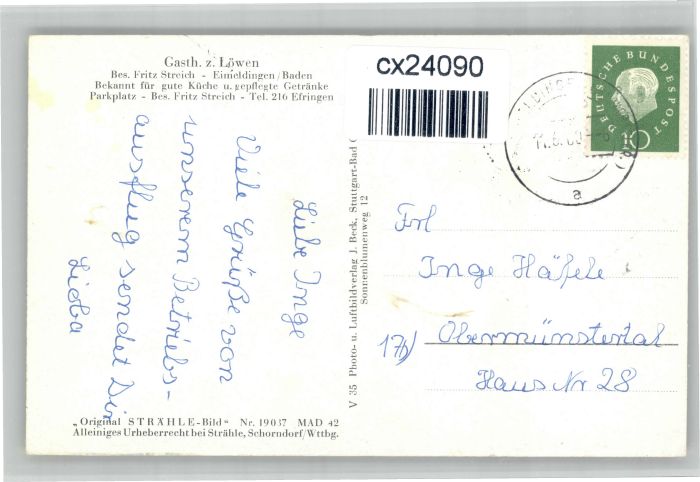 Gasth. z. Löwen
Bes. Fritz Streich - Eimeldingen/Baden
Bekannt für gute Küche u. gepflegte Getränke
Parkplatz - Bes. Fritz Streich - Tel. 216 Efringen
cx24090
DEUTSCHE BUNDESPOST
10
a
Liebe Inge
Viele Grüße von
unserem Betriebs-
ausflug sendet Dir
Lioba
V 35 Photo- u. Luftbildverlag J. Beck, Stuttgart-Bad
Sonnenblumenweg 12
Frl
Inge Häfele
17b) Obermünstertal
Haus Nr 28
„Original STRÄHLE-Bild" Nr. 19037 MAD 42
Alleiniges Urheberrecht bei Strähle, Schorndorf/Wttbg.